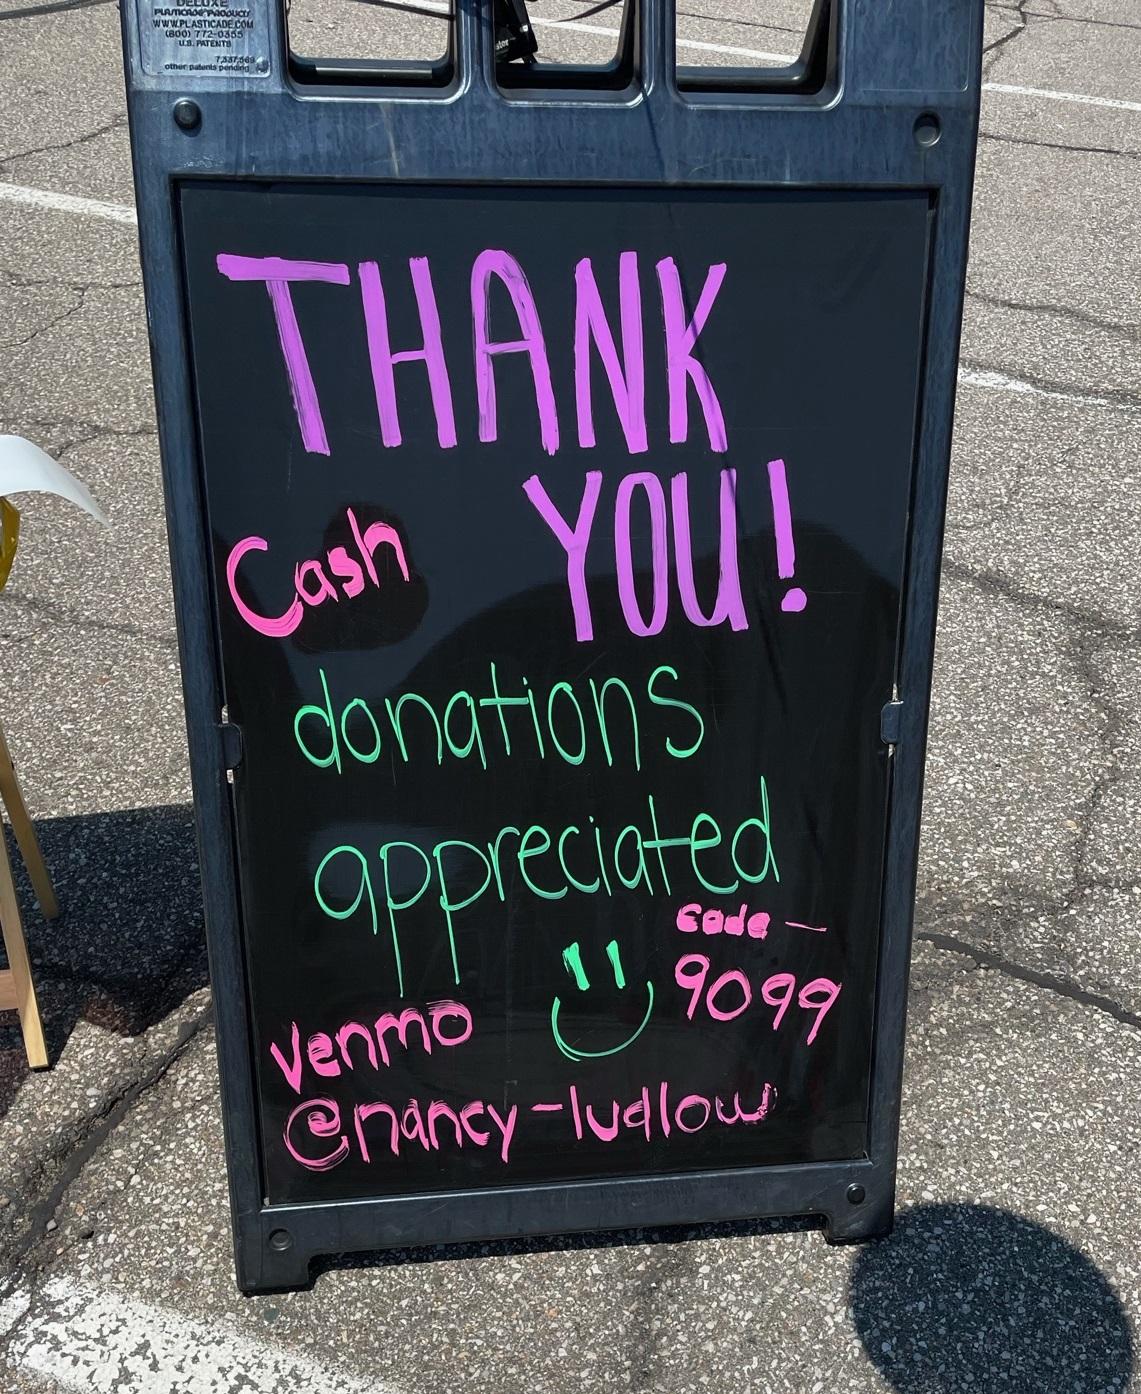 DELUXE
PLASTICADE PRODUCTS
WWW.PLASTICADE.COM
(800) 772-0355
U.S. PATENTS
7,337,569
other patents pending
THANK
YOU!
Cash
donations
appreciated
code —
9099
venmo
@nancy-ludlow